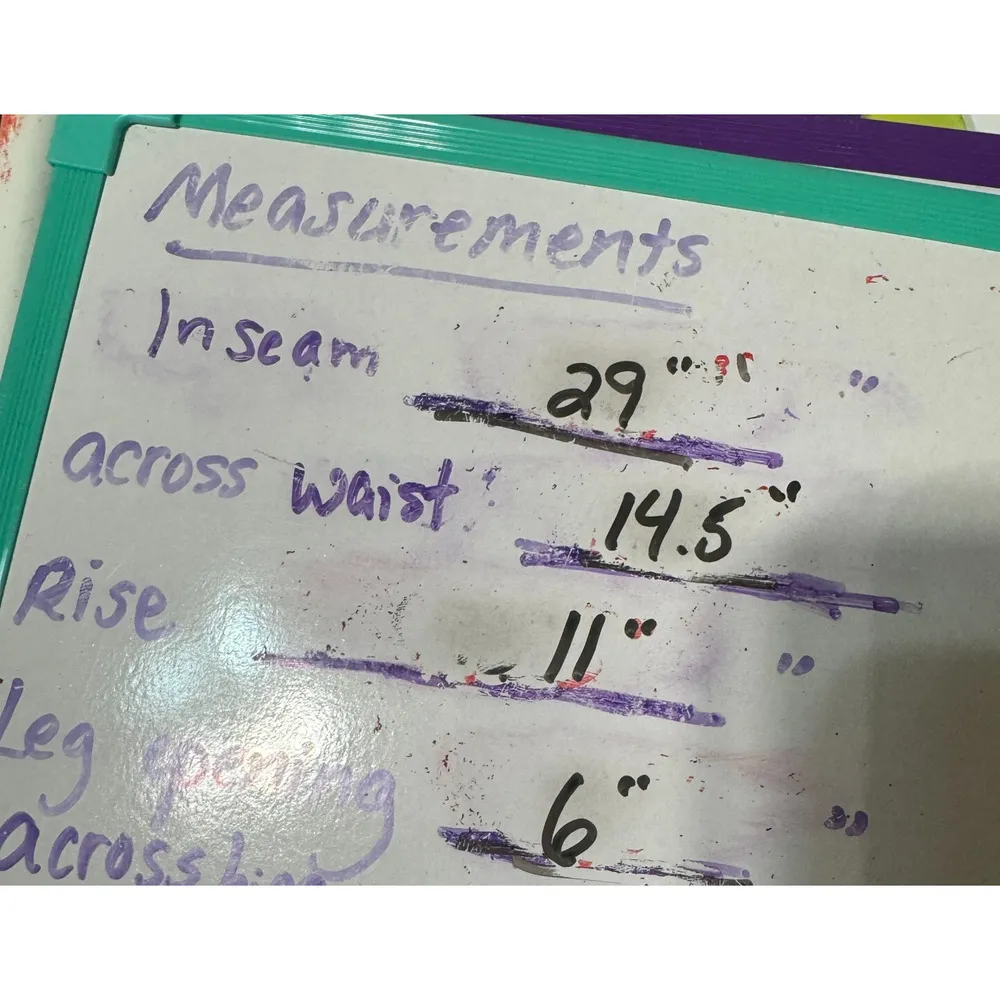 Measurements
Inseam 29"
across waist: 14.5"
Rise 11"
Leg opening 6"
across